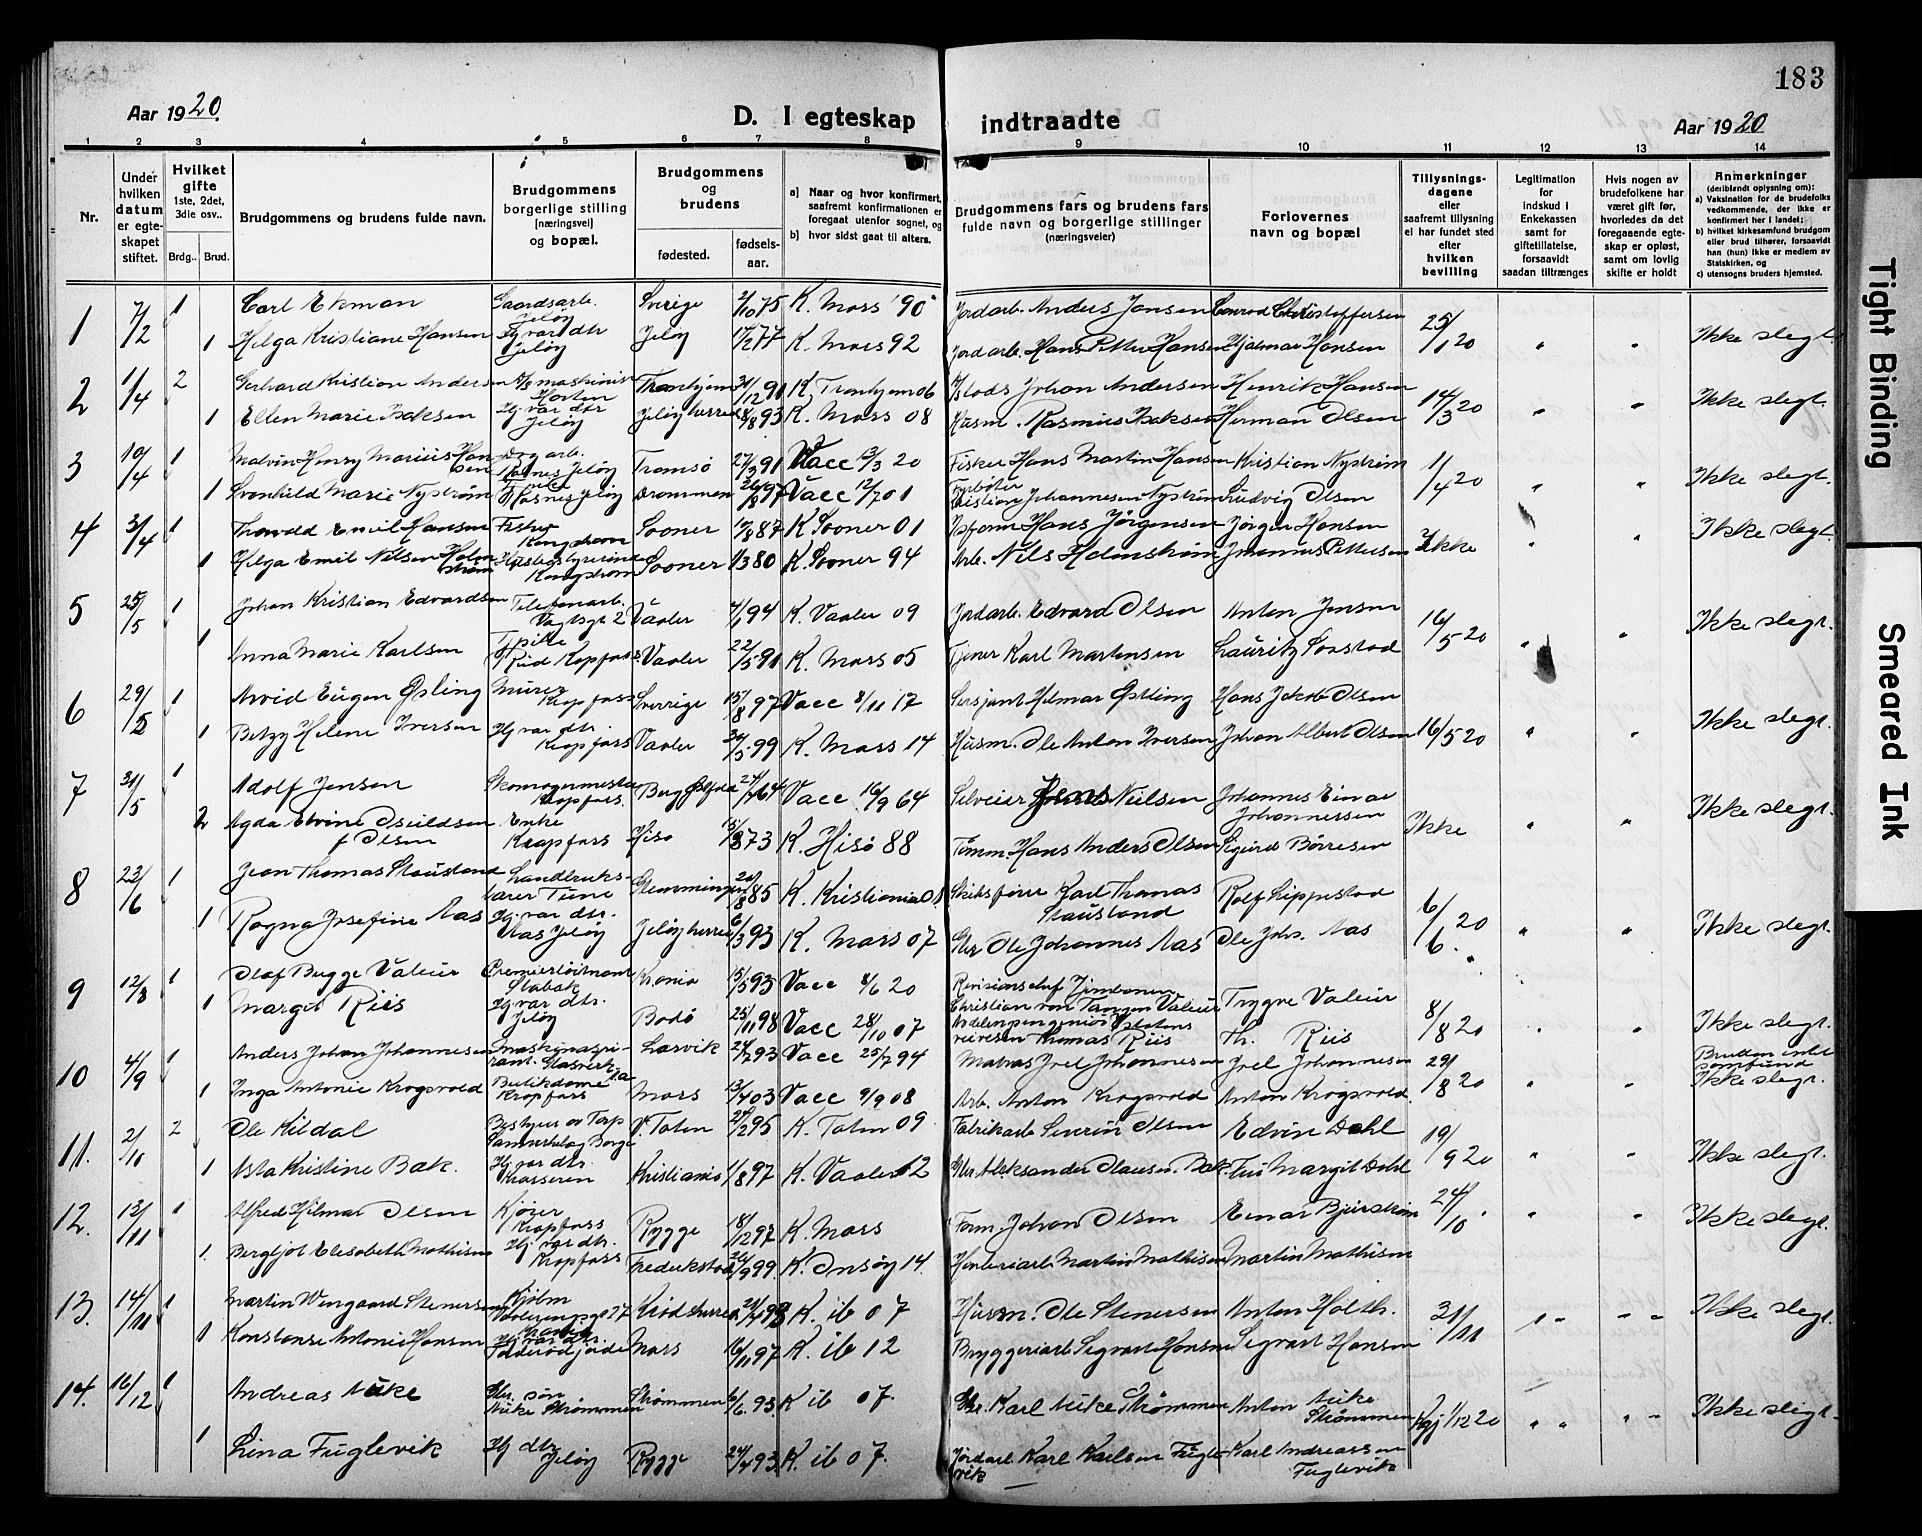 183
Aar 1920.
D. I egteskap
indtraadte
Aar 1920
1 2 3 4 5 6 7 8 9 10 11 12 13 14
Nr.
Under hvilken datum er egteskapet stiftet.
Hvilket gifte 1ste, 2det, 3die osv..
Brdg.. Brud.
Brudgommens og brudens fulde navn.
Brudgommens borgerlige stilling (næringsvei) og bopæl.
Brudgommens og brudens
fødested.
fødsels-aar.
a) Naar og hvor konfirmert, saafremt konfirmationen er foregaat utenfor sognet, og
b) hvor sidst gaat til alters.
Brudgommens fars og brudens fars fulde navn og borgerlige stillinger (næringsveier)
Forlovernes navn og bopæl
Tillysnings-dagene eller saafremt tillysning ei har fundet sted efter hvilken bevilling
Legitimation for indskud i Enkekassen samt for giftetillatelse, forsaavidt saadan tiltrænges
Hvis nogen av brudefolkene har været gift før, hvorledes da det foregaaende egteskap er opløst, samt om lovlig skifte er holdt
Anmerkninger (deriblendt oplysning om):
a) Vaksination for de brudefolks vedkommende, der ikke er konfirmert her i landet;
b) hvilket kirkesamfund brudgom eller brud tilhører, forsaavidt han (hun) ikke er medlem av Statskirken, og
c) utensogns bruders hjemsted.
1 7/2 1 Carl Ekman Gaardsarb. Jeløy Sverige 2/10 75 K. Moss 90 Jordarb. Anders Jansen Conrad Christoffersen 25/1 20
1 Helga Kristiane Hansen Hj.var. dtr Jeløy Jeløy 17/2 77 K. Moss 92 Jordarb. Hans Petter Hansen Hjalmar Hansen " " Ikke slegt.
2 1/4 2 Gerhard Kristian Andersen maskinist Horten Tronhjem 31/12 91 K. Tronhjem 06 Johan Andersen Henrik Hansen 14/3 20
1 Ellen Marie Isaksen Hj.var. dtr Jeløy Jeløy herred 4/8 93 K. Moss 08 Husm. Rasmus Isaksen Herman Olsen " " Ikke slegt.
3 10/4 1 Malvin Henry Marius Hansen Dagarb. Kasnes Jeløy Tromsø 27/3 91 Vacc 13/3 20 Fisker Hans Martin Hansen Kristian Nystrøm 11/4 20
1 Svanhild Marie Nystrøm Kasnes Jeløy Drammen 26/8 97 Vacc 12/7 01 Fyrbøter Kristian Johannesen Nystrøm Ludvig Olsen " " Ikke slegt.
4 3/4 1 Thorvald Emil Hansen Fisker Kongshavn Sooner 17/8 87 K Sooner 01 Hans Jörgensen Jørgen Hansen Ikke
1 Helga Emil Nilsen Holmstrøm Husbestyrerinde Kongshavn Sooner 1/3 80 K. Sooner 94 Arb. Nils Holmstrøm Johannes Pettersen " " Ikke slegt.
5 25/5 1 Johan Kristian Edvardsen Telefonarb. Vaaler 4/1 94 K. Vaaler 09 Jordarb. Edvard Olsen Anton Jensen 16/5 20
1 Anna Marie Karlsen Tj.pike Rud Kopfoss Vaaler 22/5 91 K. Moss 05 Tjener Karl Martensen Lauritz " " Ikke slegt.
6 29/5 1 Arvid Eugen Østling Murer Kropfoss Sverrige 15/8 97 Vacc 8/11 17 Sersjant Hilmar Østling Hans Jakob Olsen
1 Betzy Helene Iversen Hj.var dtr. Kropfoss Vaaler 30/5 99 K. Moss 14 Husm. Ole Anton Iversen Johan Albert Olsen 16/5 20 " " Ikke slegt.
7 31/5 1 Adolf Jensen Skomagermester Kropfoss. Berg Østfold 24/4 64 Vacc 16/9 64 Jens Nielsen Johannes Einar Johannessen
2 Agda Elvine f Olsen Enke Kropfoss Hisø 15/8 73 K. Hisø 88 Tømm. Hans Anders Olsen Sigurd Børresen Ikke " " Ikke slegt.
8 23/6 1 Jean Thomas Stousland Landbrukslærer Tune Glemmingen 20/8 85 K. Kristiania 01 Skibsfører Karl Thomas Stousland Rolf Lippestad 6/6 20
1 Ragna Josefine Aas Hj.var dtr. Aas Jeløy Jeløy herred 6/3 93 K. Moss 07 Gbr Ole Johannes Aas Ole Johs. Aas " " Ikke slegt.
9 12/8 1 Olaf Bugge Valeur Premierløitnant Stabæk Krania 15/5 93 Vacc 4/6 20 Revisionschef Christian von Tangen Valeur Trygve Valeur 8/8 20
1 Margit Riis Hj.var dtr. Jeløy Bodø 25/11 98 Vacc 28/10 07 Thomas Riis Th. Riis " " Ikke slegt.
10 4/9 1 Anders Johan Johannesen Maskinaspirant. Glasverket Larvik 24/7 93 Vacc 25/7 94 Matros Joel Johannesen Joel Johannesen 29/8 20 Bruden samfund
1 Inga Antonie Krogsvold Butikdame Kropfoss Moss 13/4 03 Vacc 9/9 08 Arb. Anton Krogsvold Anton Krogsvold. " " Ikke slegt.
11. 2/10 2 Ole Kildal Bestyrer av Torp Borge V. Toten 27/2 95 K. Toten 09 Fabrikarb Severin Olsen Edvin Dahl 19/9 20
1 Asta Kristine Bak. Hj.var dtr. Kristiania 1/8 97 K. Vaaler 12 Gbr Aleksander Olausen Bak Fru Margit Dahl " " Ikke slegt.
12. 13/11 1 Alfred Hilmar Olsen Kjører Kropfoss Rygge 18/12 97 K. Moss Form. Johan Olsen Einar Bjurstrøm 24/10
1. Bergljot Elisabeth Mathisen Hj.var dtr. Kropfoss Fredrikstad 26/9 99 K. Onsøy 14. Martin Mathisen Martin Mathisen " " Ikke slegt.
13. 14/11 1 Martin Wengaard Stenersen 27 Krødsherred K. ib 07 Husm. Ole Stenersen Anton Holth. 31/11
1 Konstanse Antonie Hansen Hj.var dtr. Moss 16/11 97 K. ib 12 Bryggeriarb Segvart Hansen Segvart Hansen " " Ikke slegt.
14. 16/12 1 Andreas Auke Gbr. søn Auke Strømmen Strømmen 6/6. 93. K ib 07. Gbr. Karl Auke Strømmen Anton Auke Strømmen 1/12 20
1 Lina Fuglevik Hj dtr Jeløy Rygge 24/4 93 K. ib 07. Jordarb. Karl Karlsen Fuglevik Karl Andreassen Fuglevik " " Ikke slegt.
Tight Binding
Smeared Ink